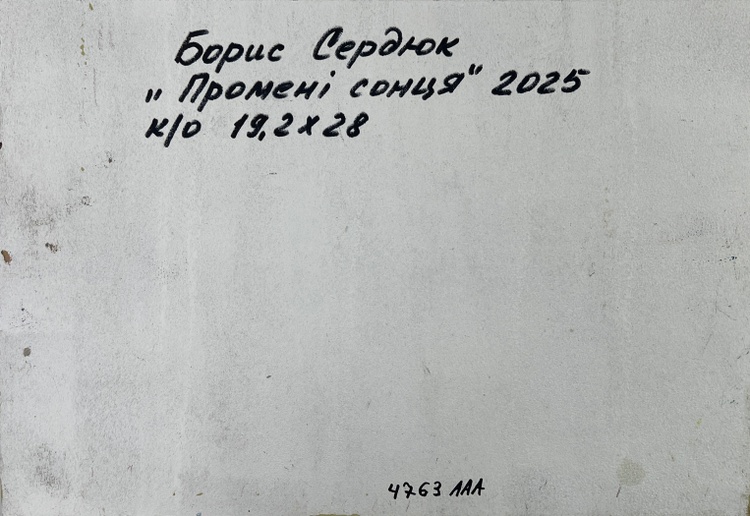 Борис Сердюк
„Промені сонця" 2025
к/о 19,2х28
4763 ЛЛЛ